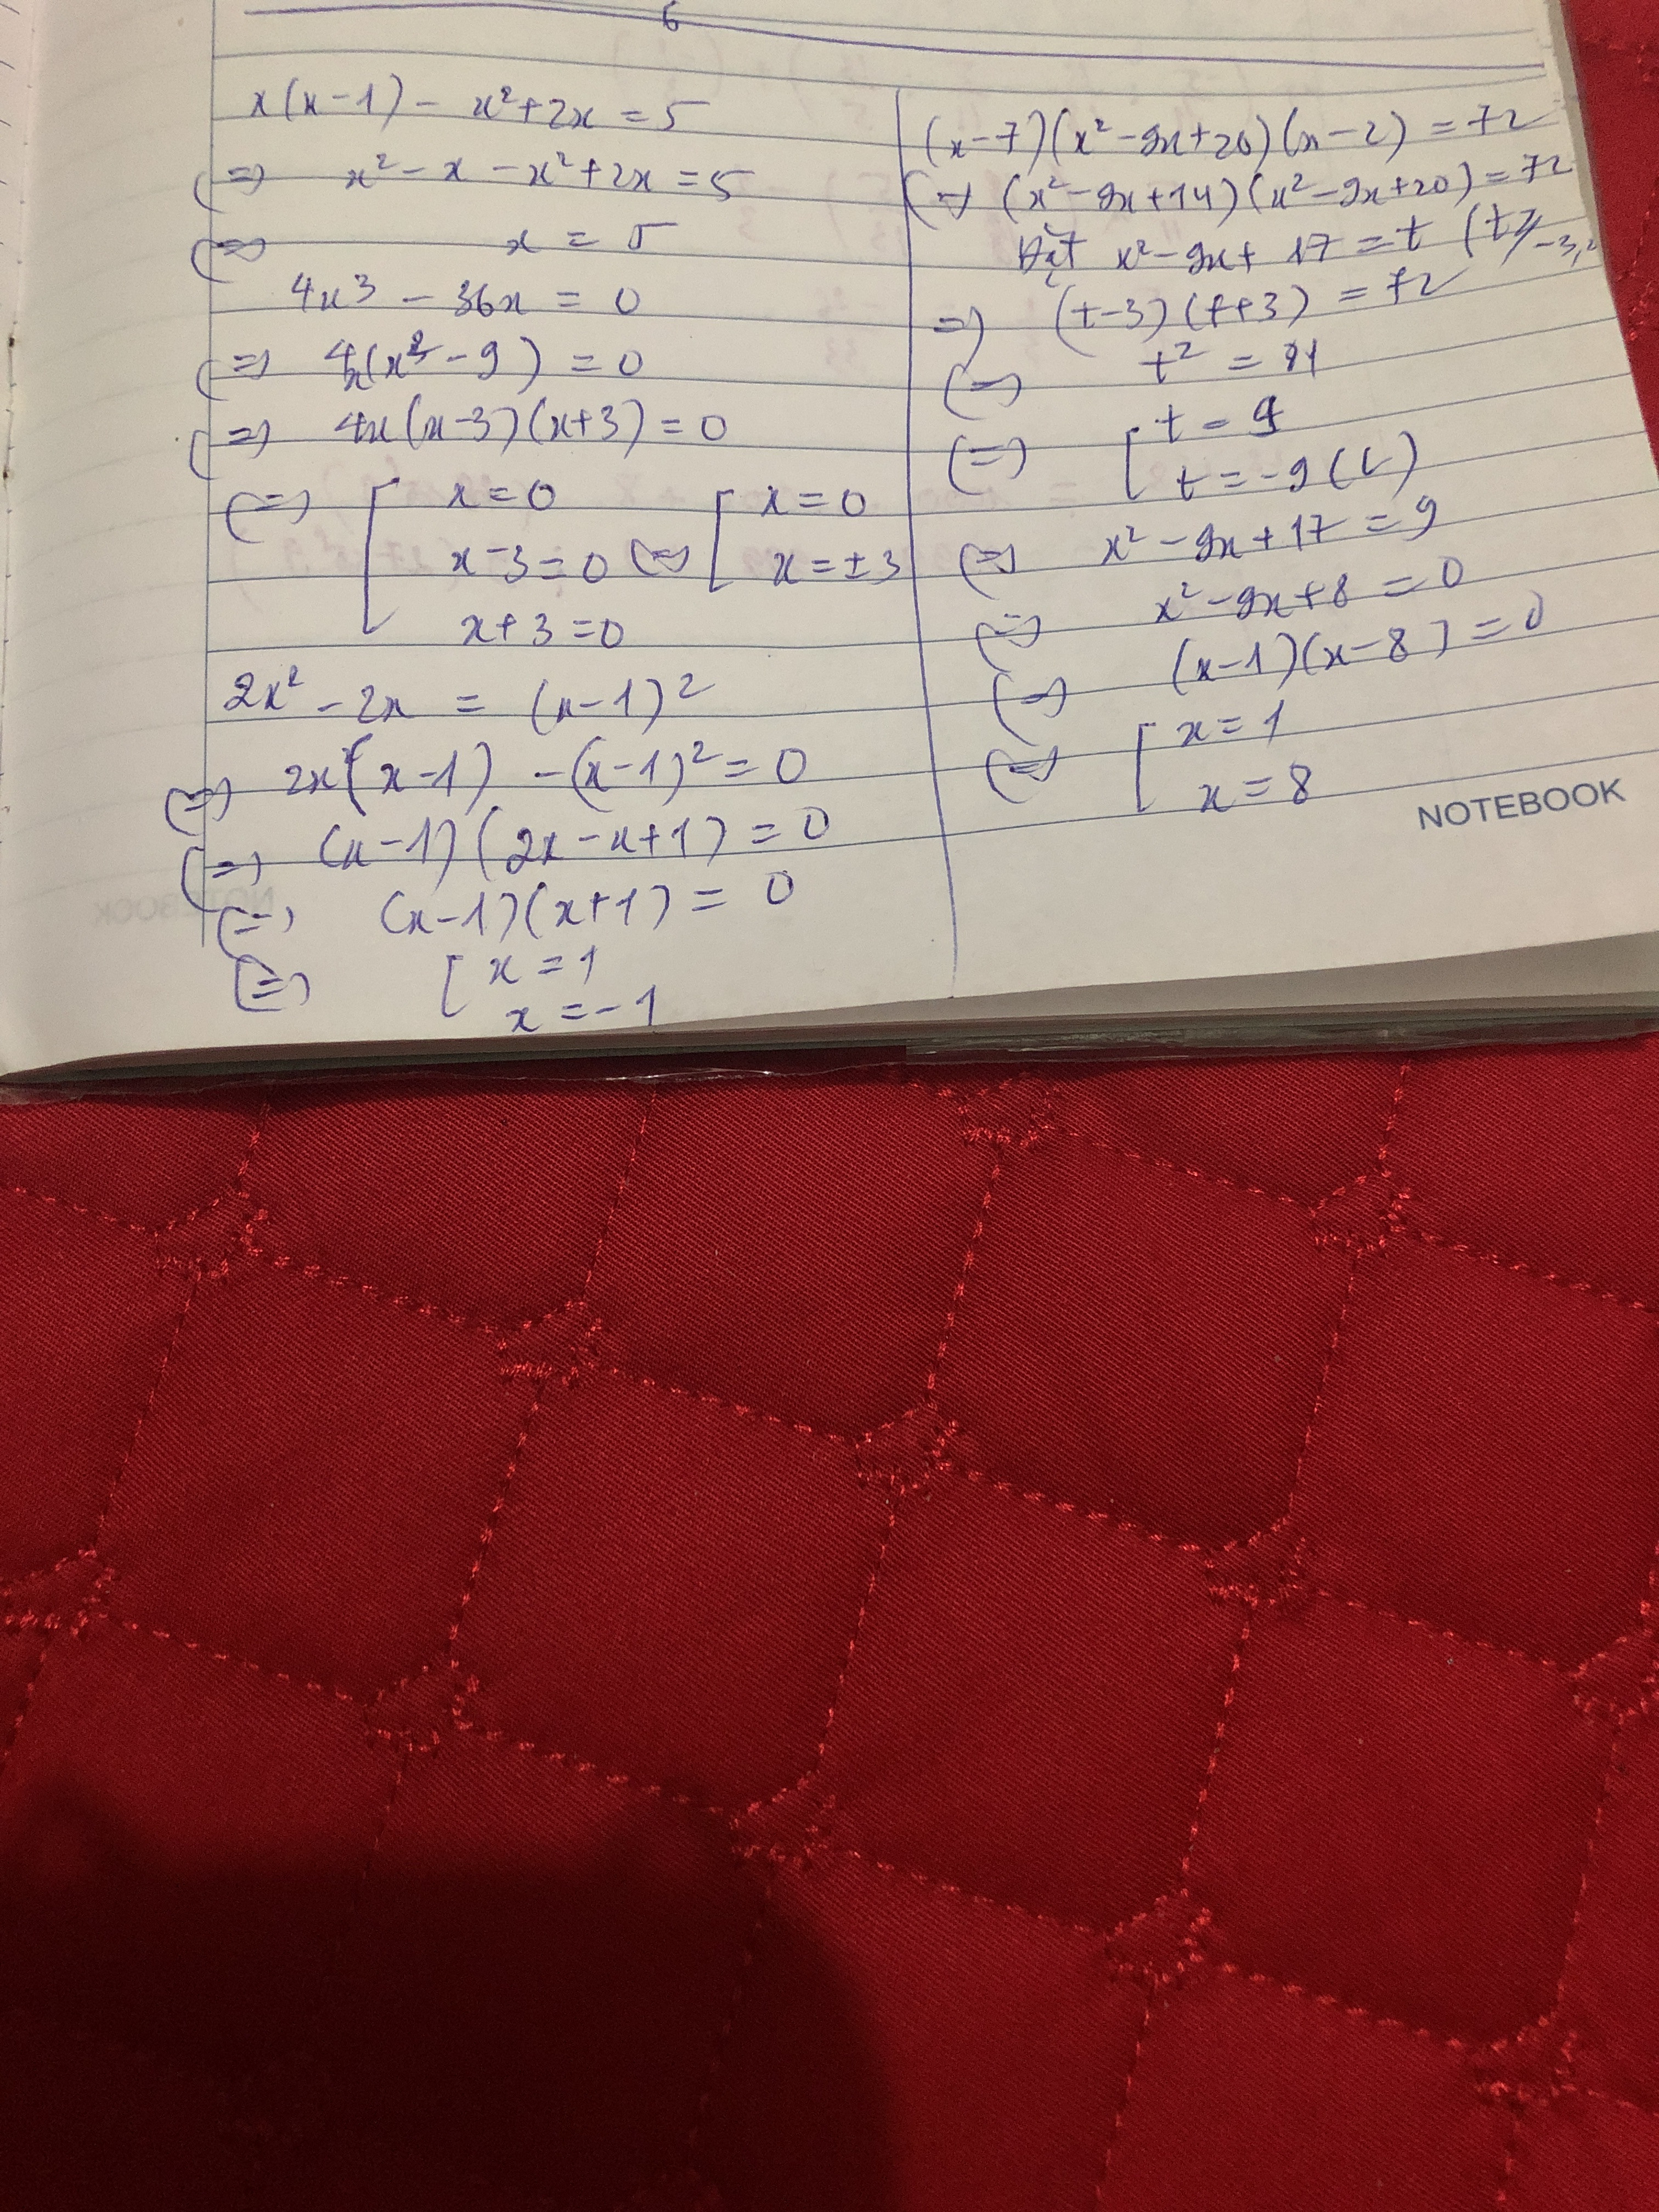 6
x(x-1) - x²+2x = 5
(=) x² - x - x²+2x = 5
(=) x = 5
4x³ - 36x = 0
(=) 4x(x² - 9) = 0
(=) 4x(x-3)(x+3) = 0
(=) [ x = 0
x-3 = 0 (=) [ x = 0
x = ±3
x+3 = 0
2x² - 2x = (x-1)²
(=) 2x(x-1) - (x-1)² = 0
(=) (x-1)(2x-x+1) = 0
(=) (x-1)(x+1) = 0
(=) [ x = 1
x = -1
(x-7)(x²-9x+20)(x-2) = 72
(=) (x²-9x+14)(x²-9x+20) = 72
Đặt x²-9x+17 = t (t ≥
=) (t-3)(t+3) = 72
(=) t² = 81
(=) [ t = 9
t = -9 (L)
(=) x² - 9x + 17 = 9
(=) x² - 9x + 8 = 0
(=) (x-1)(x-8) = 0
(=) [ x = 1
x = 8
NOTEBOOK